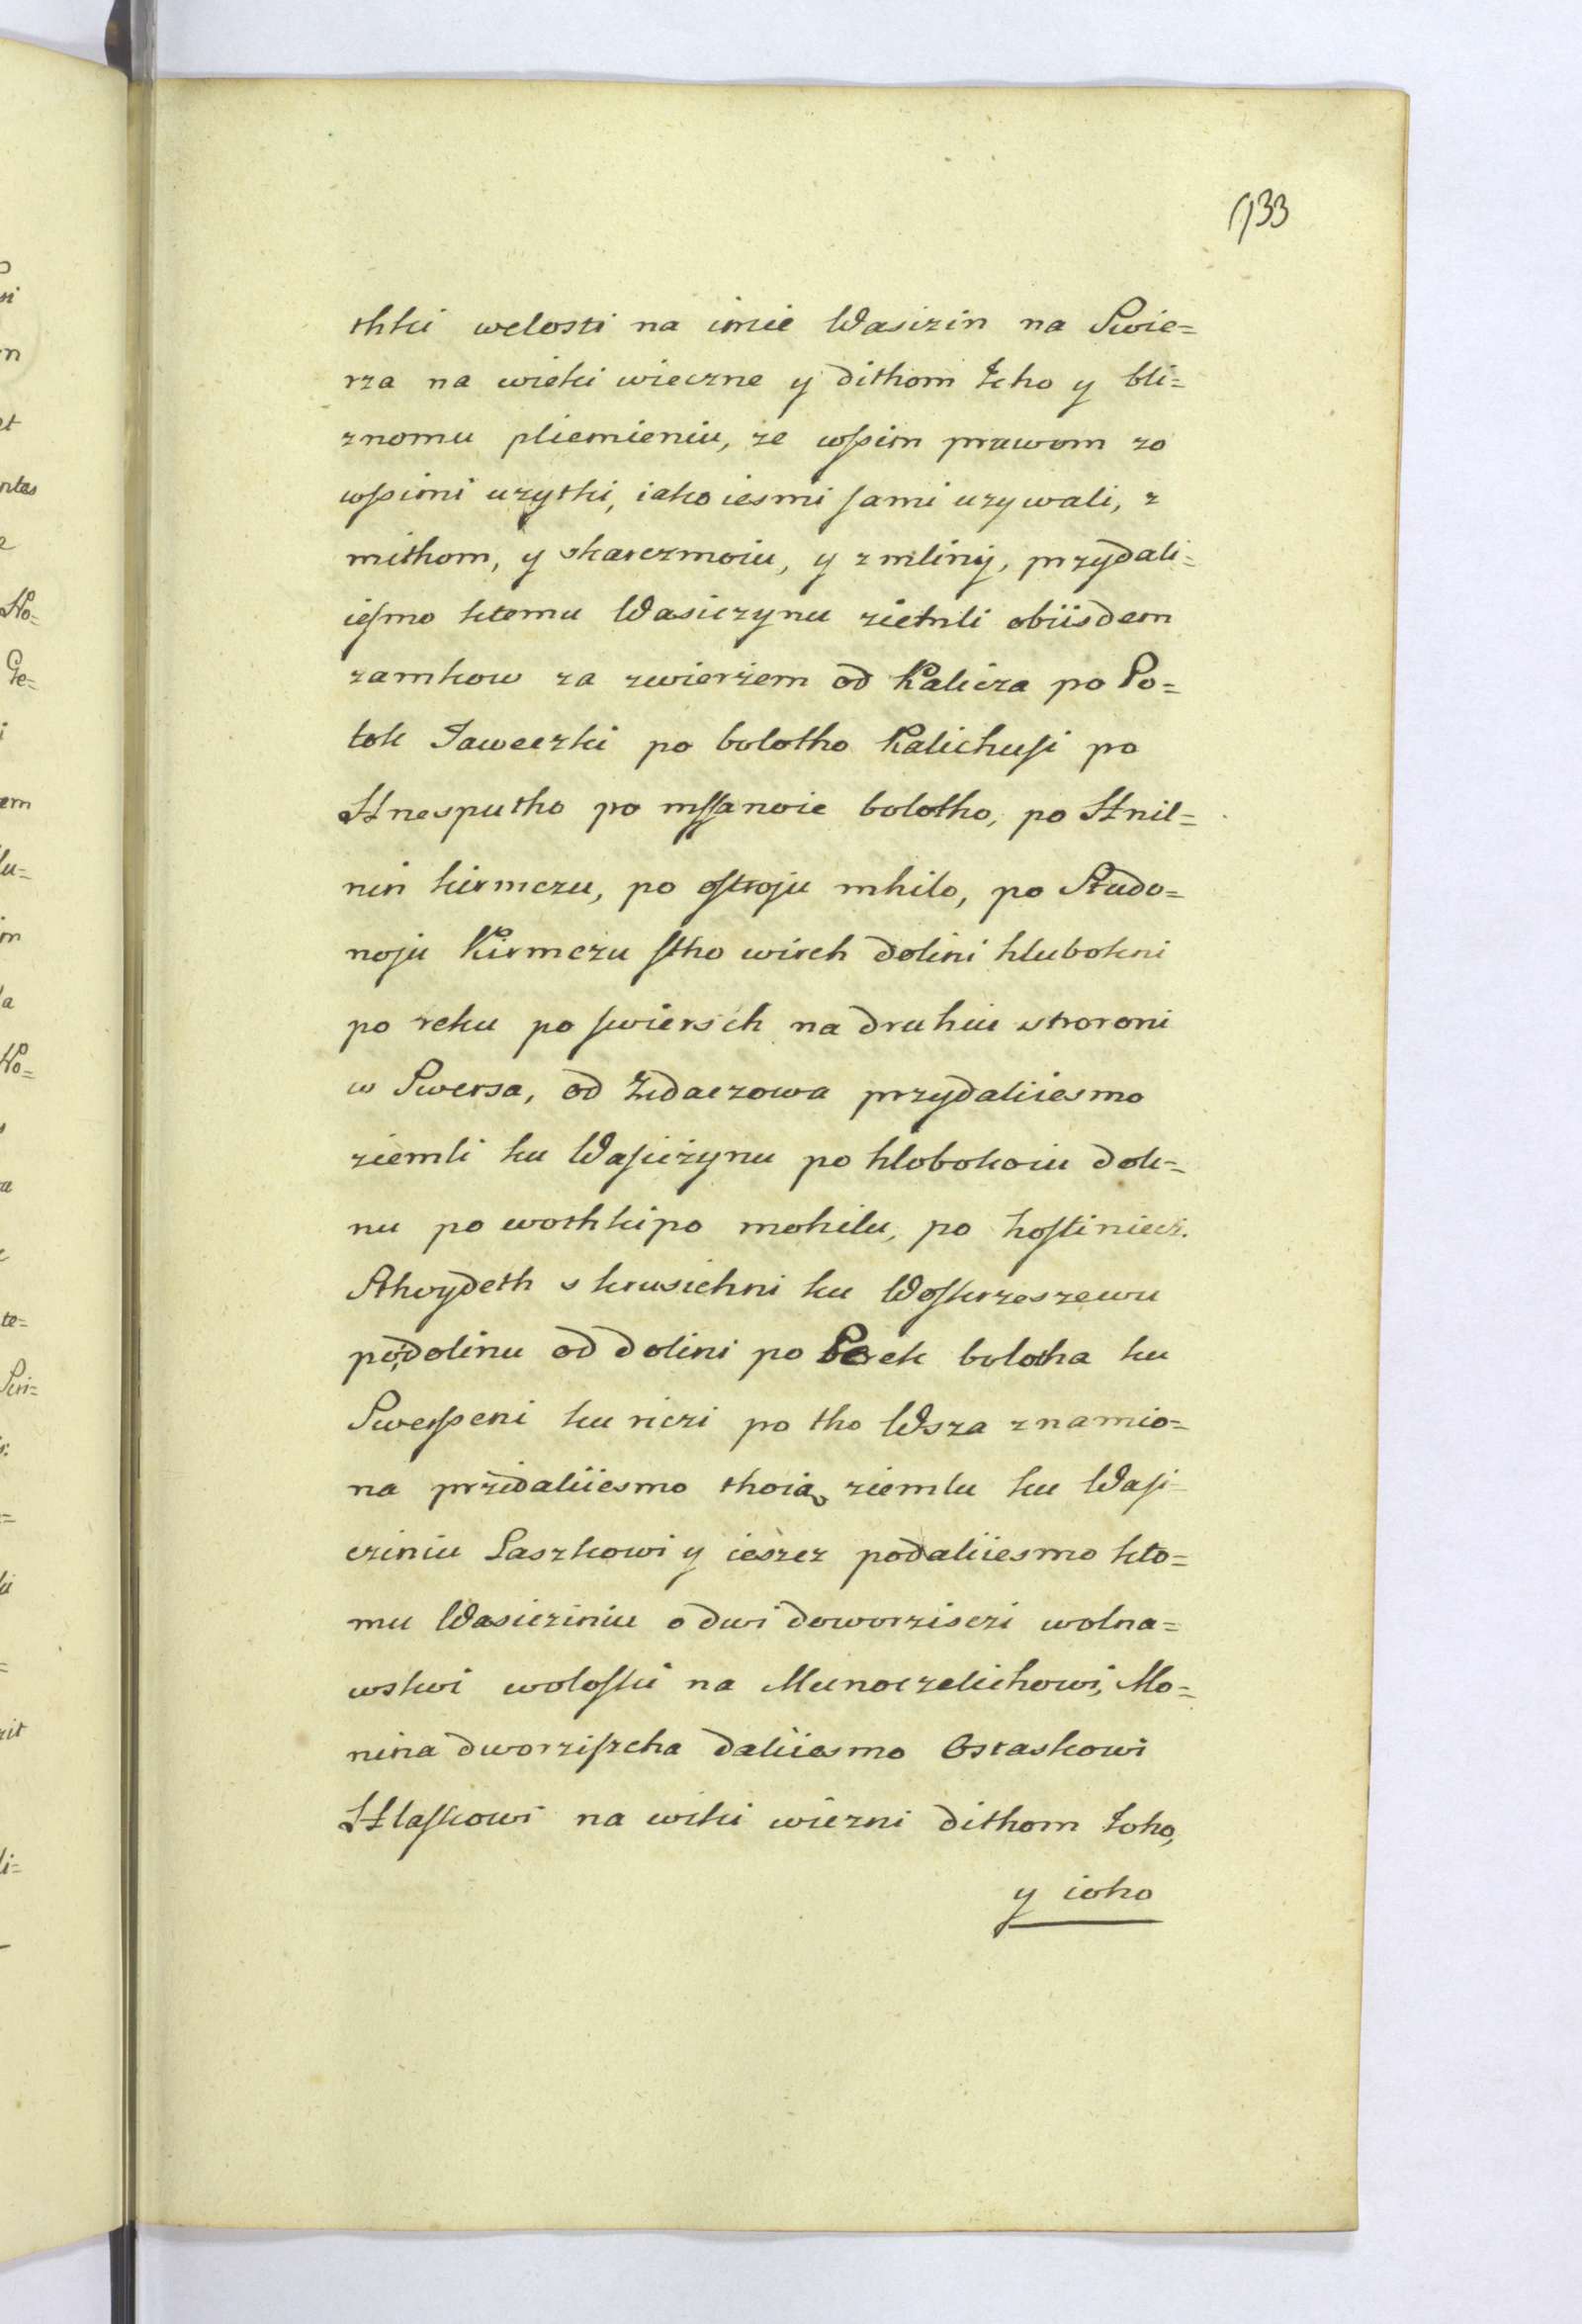 133
thki welosti na imie Wasizin na Swie=
rza na wieki wieczne y dithom Icho y bli=
znomu pliemieniu, ze wſsim prawom zo
wſsimi uzytki, iako iesmi ſami uzywali, z
mithom, y skarczmoiu, y z mliny, przydali=
ieſmo ktemu Wasiczynu zietnli obiisdem
zamkow za zwierzem od Kalicza po Po=
tok Jaweczki po bolotho Kalichuſi po
Hnesputho po mſſanoie bolotho, po Hnil=
nin kirmczu, po oſtroju mhilo, po Studo=
noju Kirmczu ſtho wirch dolini hlubokni
po reku po ſwiersch na druhiu stroroni
w Swersa, od Zidaczowa przydaliiesmo
ziemli ku Waſiczynu po hlobokoiu dok=
nu po wothkipo mohilu, po hoſtiniecz.
Sthoydeth s krusichni ku Woſkrzeszewu
po dolinu od dolini po Berek bolotha ku
Sweſseni ku riczi po tho Wsza znamio=
na przidaliiesmo thoią ziemlu ku Waſi=
cziniu Laszkowi y ieszez podaliiesmo kto=
mu Wasicziniu o dwi doworzisczi wolna=
wskwi woloſtki na Munoczelichowi, Mo=
nina dworziſzcha daliiesmo Ostaskowi
Hlaſkowi na wiki wiezni dithom Ioho,
y ioho